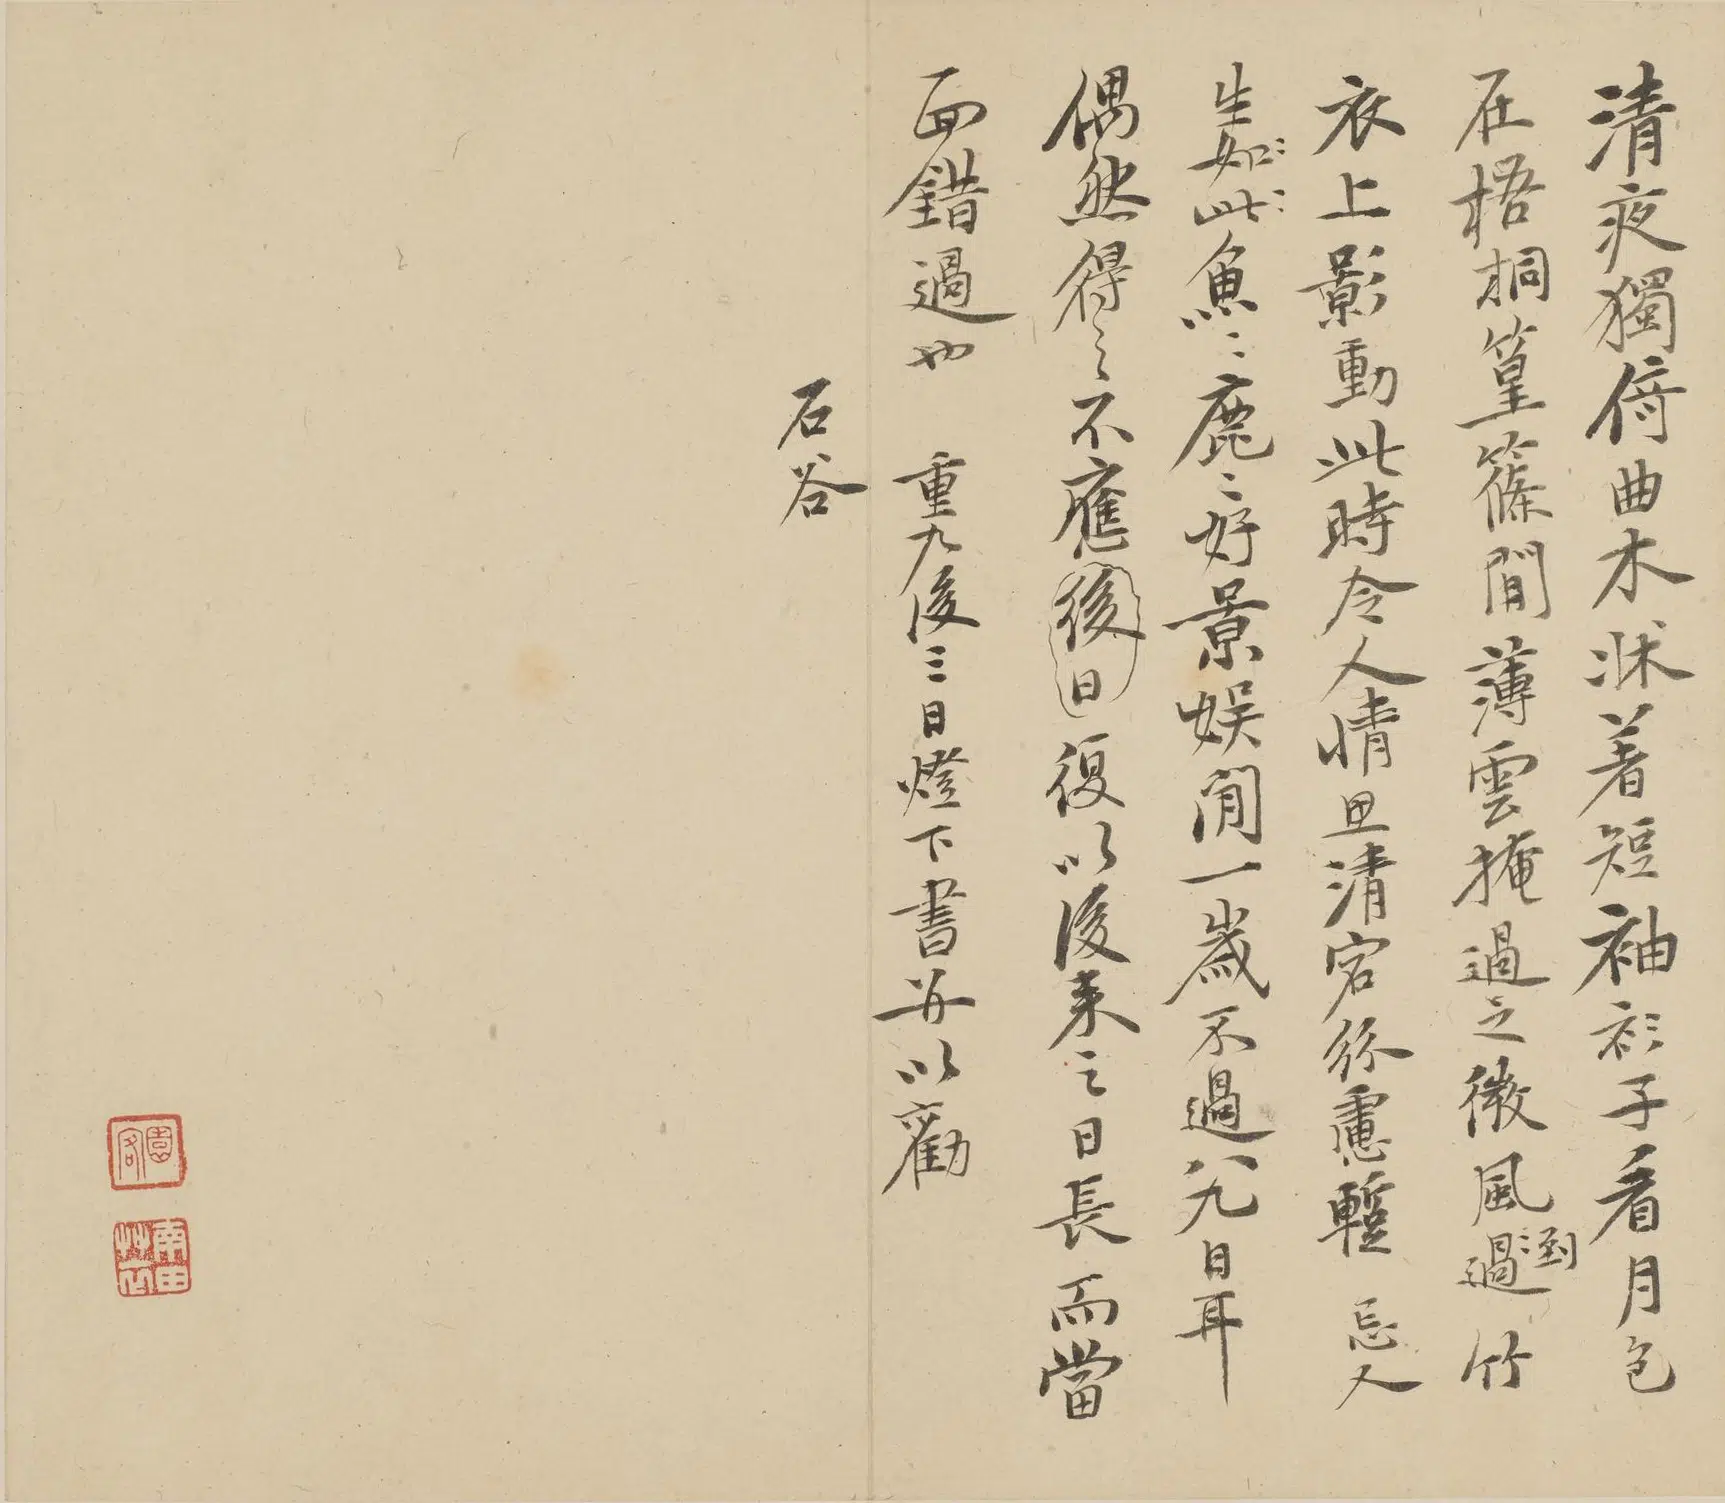 清夜獨倚曲木牀著短袖衫子看月色
在梧桐篁篠閒薄雲掩過之微風過到竹
衣上影動此時令人情思清宕紛慮暫忘人
生如此魚魚鹿鹿好景娛閒一歲不過八九日耳
偶然得之不應後日復以後來之日長而當
面錯過也 重九後三日燈下書并以勸
石谷
園客